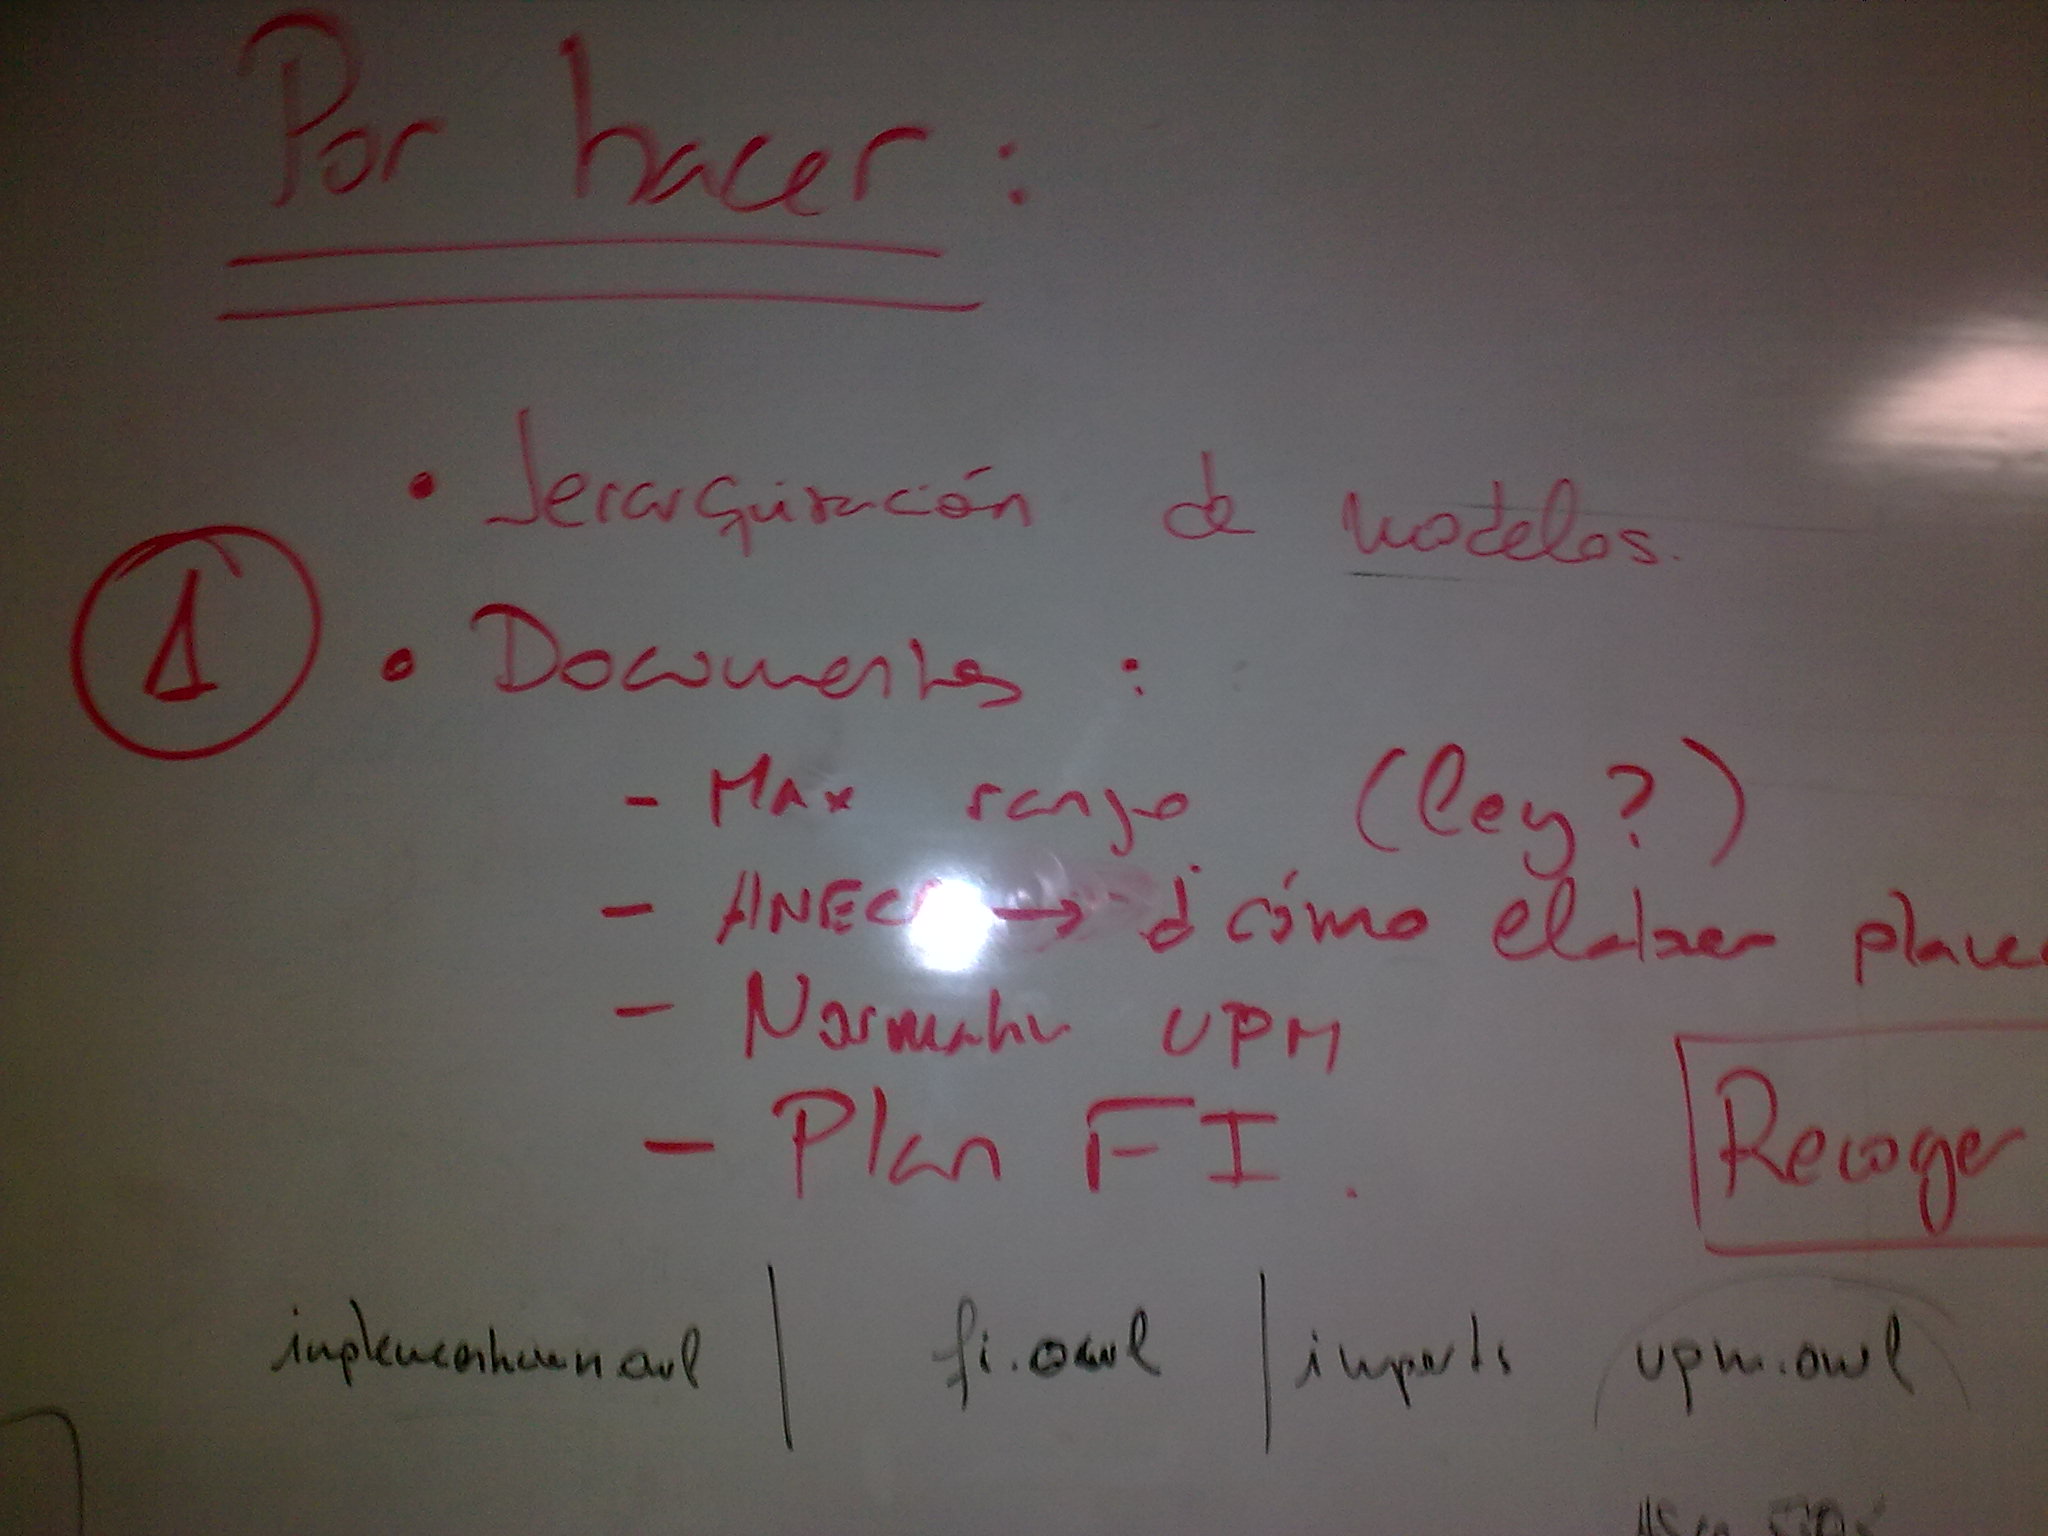 Por hacer:
• Jerarquización de modelos.
① • Documentos :
- Max rango (ley?)
- ANECA → ¿cómo elaborar planes
- Normativa UPM
- Plan FI.
Recoger
implementation.owl | fi.owl | imports upm.owl